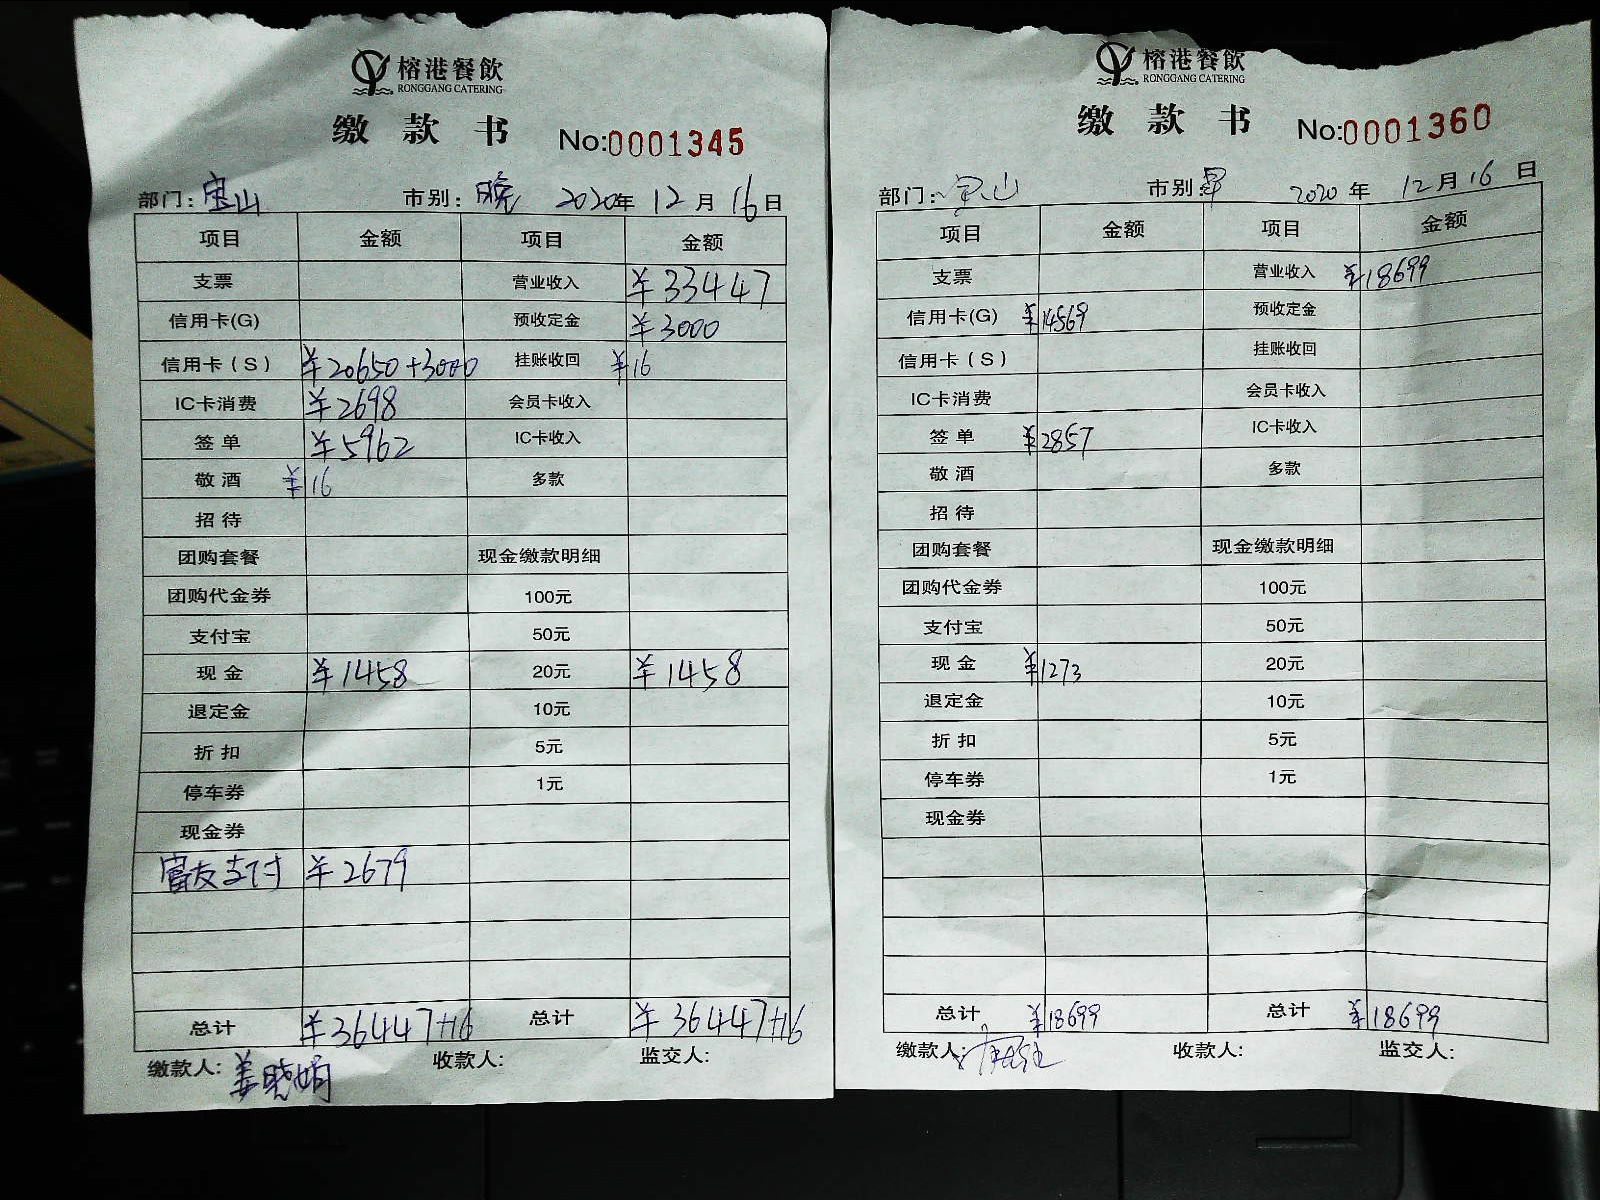 榕港餐飲
RONGGANG CATERING
缴款书 No:0001345
部门: 宝山 市别: 晚 2020年 12月 16日
项目 金额 项目 金额
支票 营业收入 ¥33447
信用卡(G) 预收定金 ¥3000
信用卡(S) ¥20650+3000 挂账收回 ¥16
IC卡消费 ¥2698 会员卡收入
签单 ¥5962 IC卡收入
敬酒 ¥16 多款
招待
团购套餐 现金缴款明细
团购代金券 100元
支付宝 50元
现金 ¥1458 20元 ¥1458
退定金 10元
折扣 5元
停车券 1元
现金券
富友支付 ¥2679
总计 ¥36447+16 总计 ¥36447+16
缴款人: 姜晓娟 收款人: 监交人:
榕港餐飲
RONGGANG CATERING
缴款书 No:0001360
部门: 宝山 市别: 早 2020年 12月 16日
项目 金额 项目 金额
支票 营业收入 ¥18699
信用卡(G) ¥14569 预收定金
信用卡(S) 挂账收回
IC卡消费 会员卡收入
签单 ¥2857 IC卡收入
敬酒 多款
招待
团购套餐 现金缴款明细
团购代金券 100元
支付宝 50元
现金 ¥1273 20元
退定金 10元
折扣 5元
停车券 1元
现金券
总计 ¥18699 总计 ¥18699
缴款人: 收款人: 监交人: